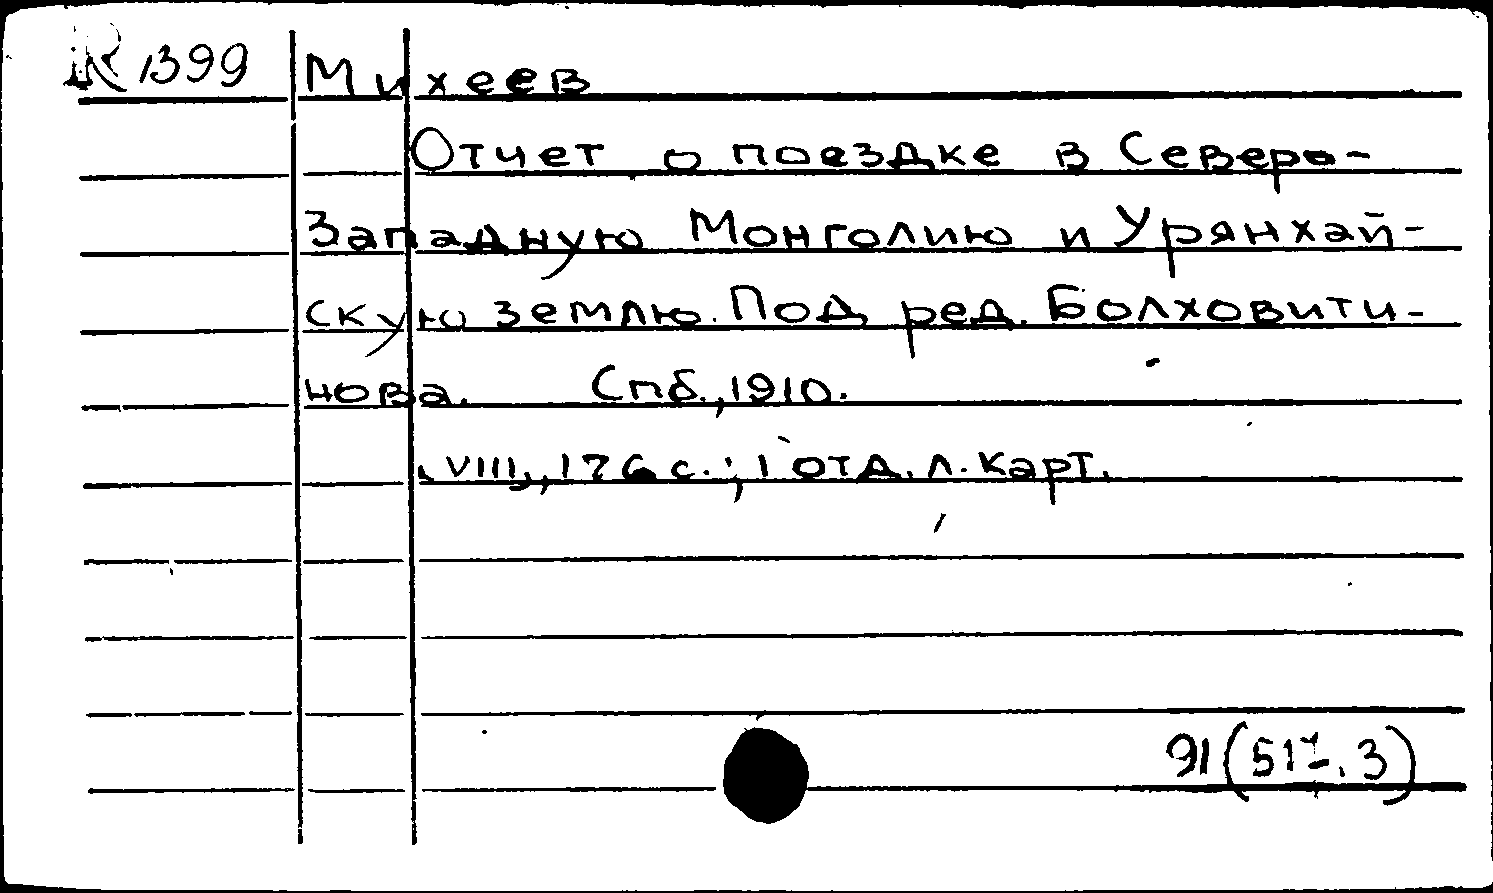 К 1399 Михеев
Отчет о поездке в Северо-
Западную Монголию и Урянхай-
скую землю. Под ред. Болховити-
нова. Спб., 1910.
VIII, 176 с.; 1 отд. л. карт.
91(517.3)